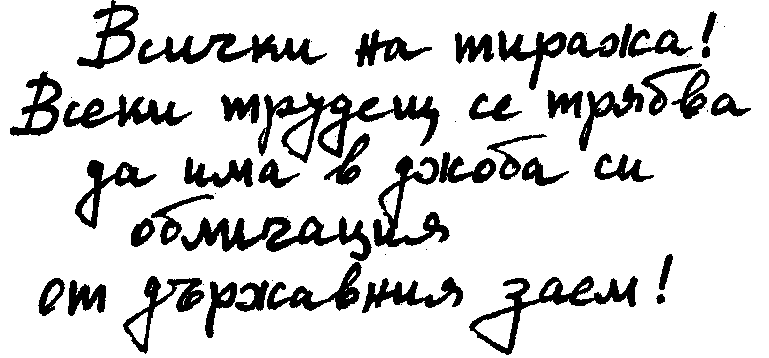 Всички на тиража!
Всеки трудещ се трябва
да има в джоба си
обличация
от държавния заем!